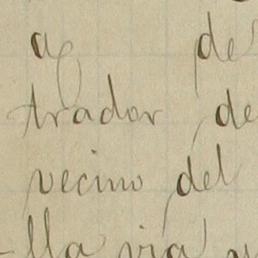 de
trador de
vecino del
lla via